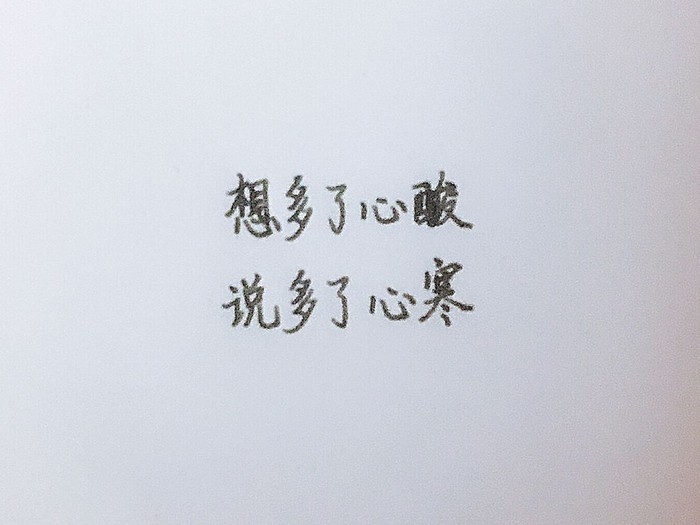 想多了心酸
说多了心寒